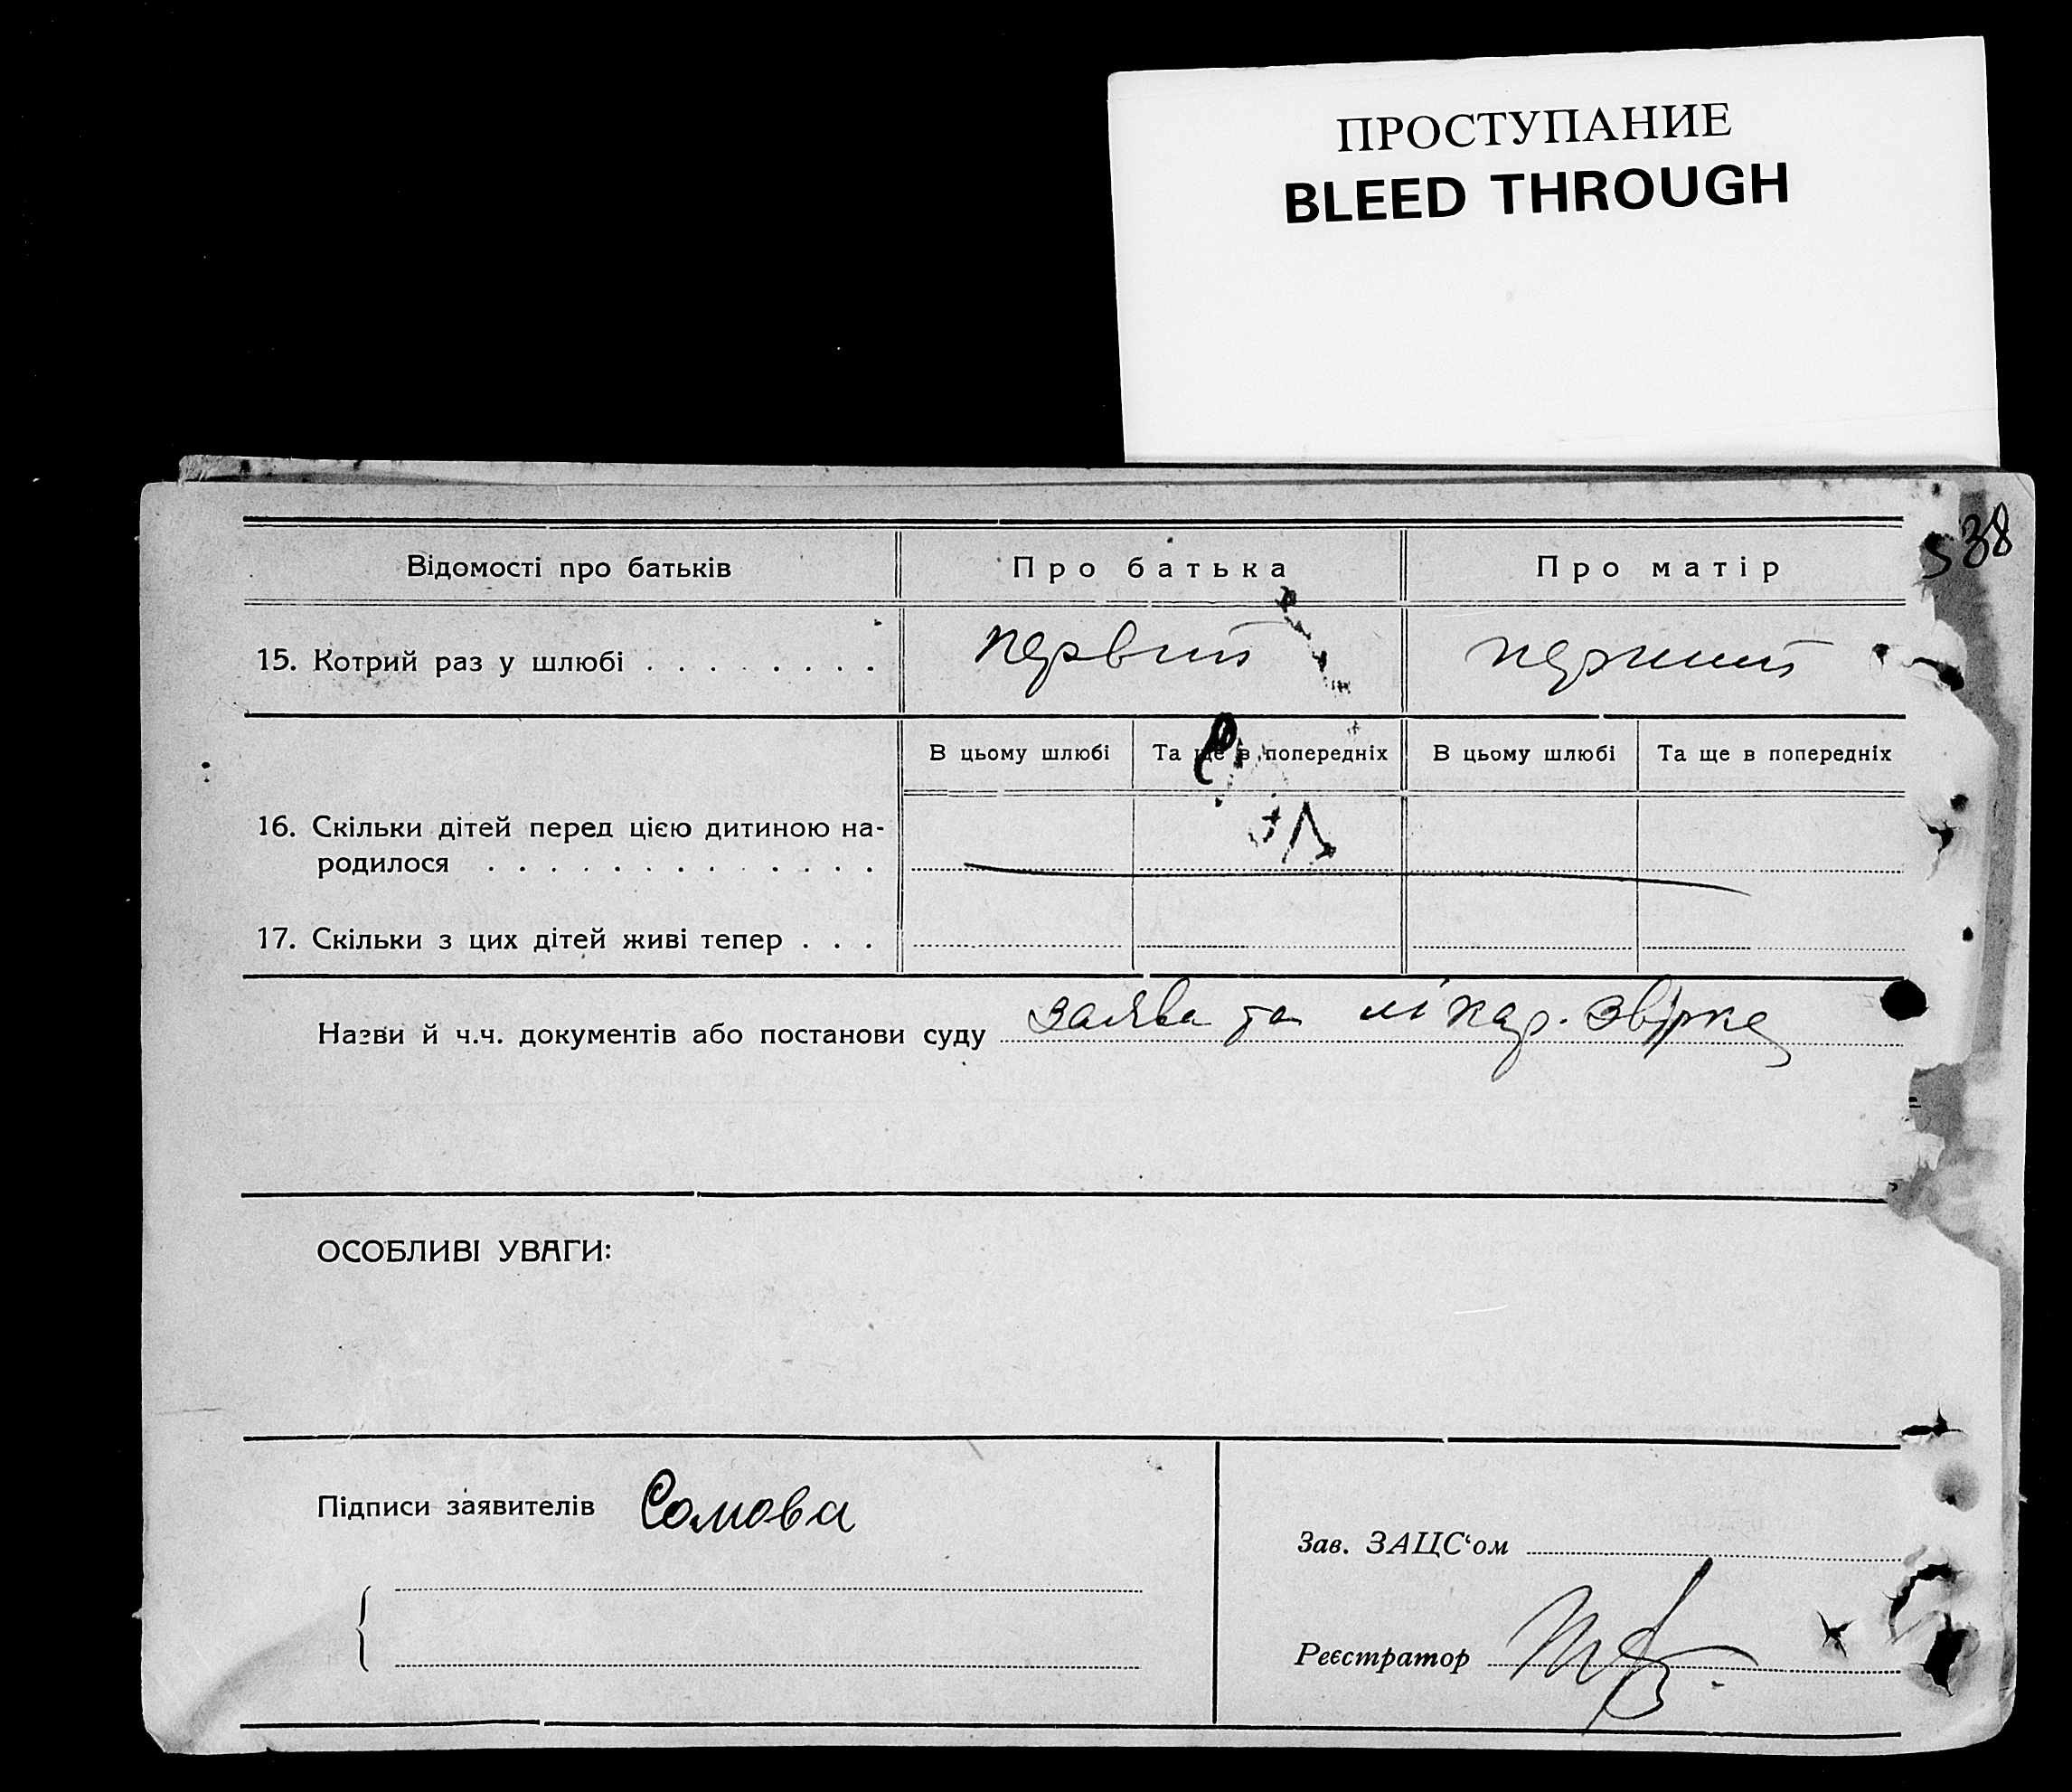 ПРОСТУПАНИЕ
BLEED THROUGH
38
Відомості про батьків Про батька Про матір
15. Котрий раз у шлюбі . . . . . . . . первий перший
В цьому шлюбі Та ще в попередніх В цьому шлюбі Та ще в попередніх
16. Скільки дітей перед цією дитиною на-
родилося . . . . . . . . . . . . .
17. Скільки з цих дітей живі тепер . . .
Назви й ч.ч. документів або постанови суду заява та лікар.
ОСОБЛИВІ УВАГИ:
Підписи заявителів Сомова
Зав. ЗАЦС‘ом
Реєстратор